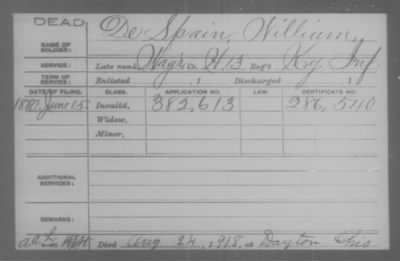 DEAD
NAME OF SOLDIER: De Spain, William,
SERVICE: Late rank Wag'r Co. H 13 Reg't Ky. Inf.
TERM OF SERVICE: Enlisted , 1 Discharged , 1
DATE OF FILING. CLASS. APPLICATION NO. LAW. CERTIFICATE NO.
1880, June 15. Invalid, 382,613 286,540
Widow,
Minor,
ADDITIONAL SERVICES:
REMARKS:
Died Aug 24, 1918, at Dayton Ohio